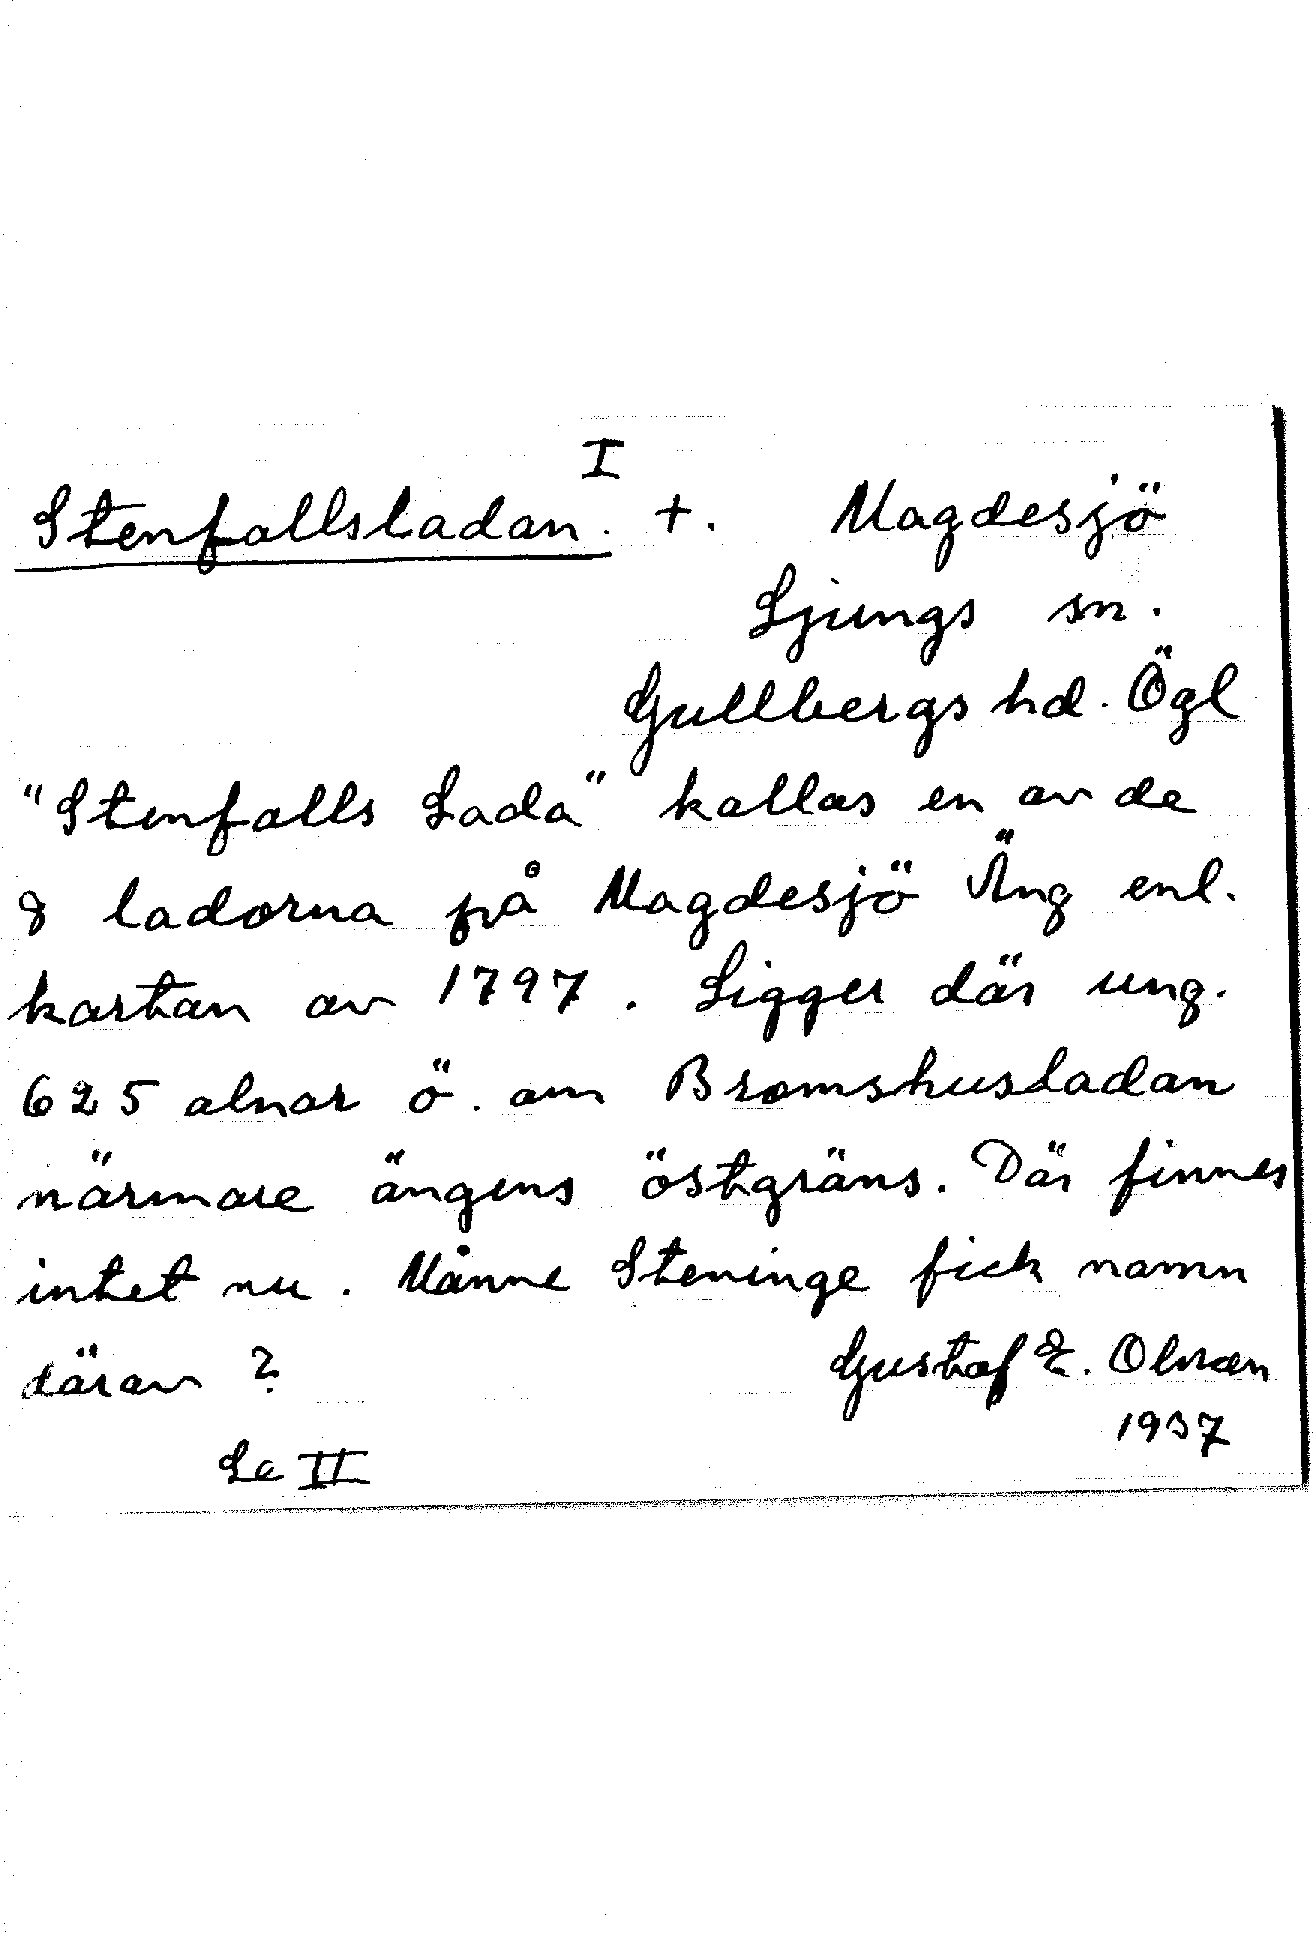 I
Stenfallsladan. +. Magdesjö
Ljungs sn.
Gullbergs hd. Ögl
"Stenfalls Lada" kallas en av de
8 ladorna på Magdesjö Äng enl.
kartan av 1797. Ligger där ung.
625 alnar ö. om Bromshusladan
närmare ängens östgräns. Där finnes
intet nu. Månne Steninge fick namn
därav?
Gustaf E. Olsson
1937
La II